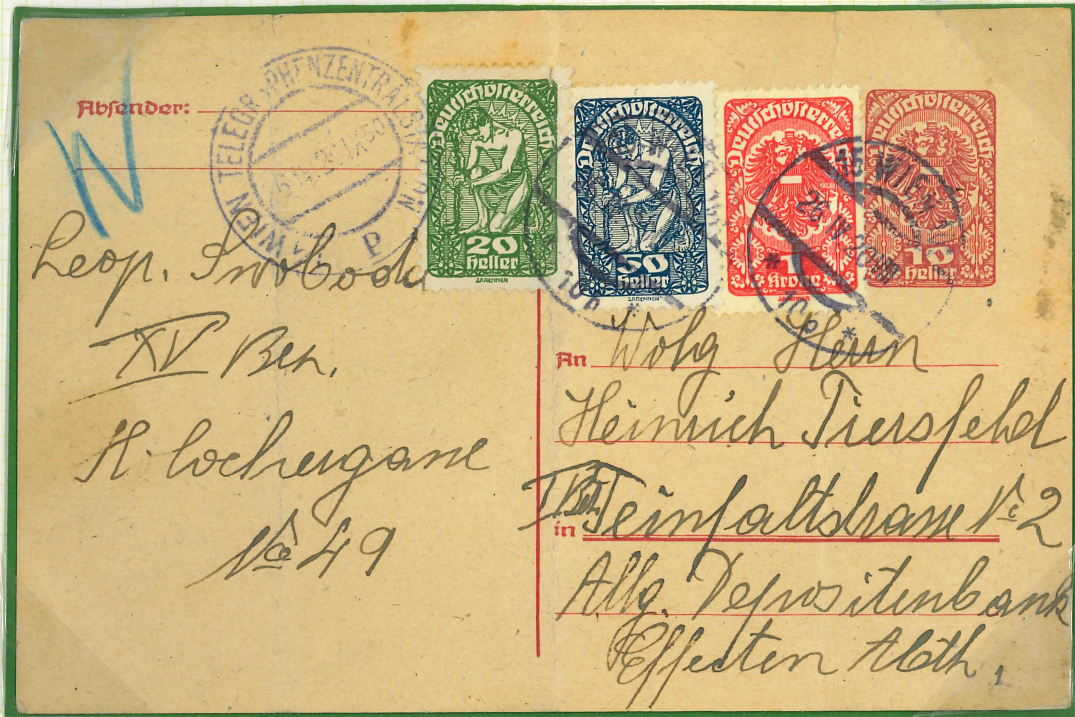 Absender:
WIEN TELEGRAPHENZENTRALSTATION
P
Deutschösterreich
20
Heller
Deutschösterreich
50
Heller
Deutschösterreich
1
Krone
Deutschösterreich
10
Heller
15 WIEN
10p *
* 10p *
Leop. Swoboda
XV Bez.
No 49
An Wolg Herrn
Heinrich Tiersfeld
in Teinfaltstrasse No 2
Allg. Depositenbank
Effecten Abth.
1